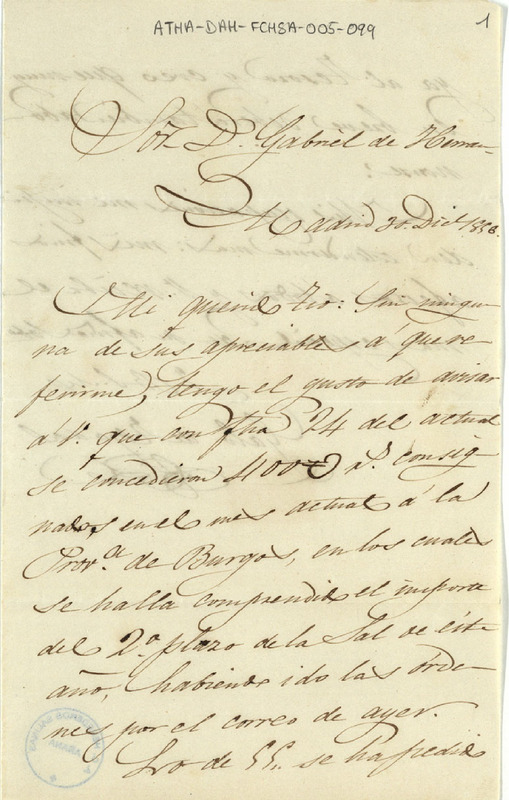 ATHA-DAH-FCHSA-005-099
1
Sor. D. Gabriel de Herran
Madrid 30. Dice. 1858.
Mi querido tio: Sin ningu-
na de sus apreciables á que re-
ferirme, tengo el gusto de avisar
á V. que con fha 24 del actual
se concedieron rs. consig
nados, en el mes actual á la
Prova. de Burgos, en los cuales
se halla comprendido el importe
del 2o. plazo de la Sal de este
año, habiendo ido las órde-
nes por el correo de ayer.
de se ha pedido